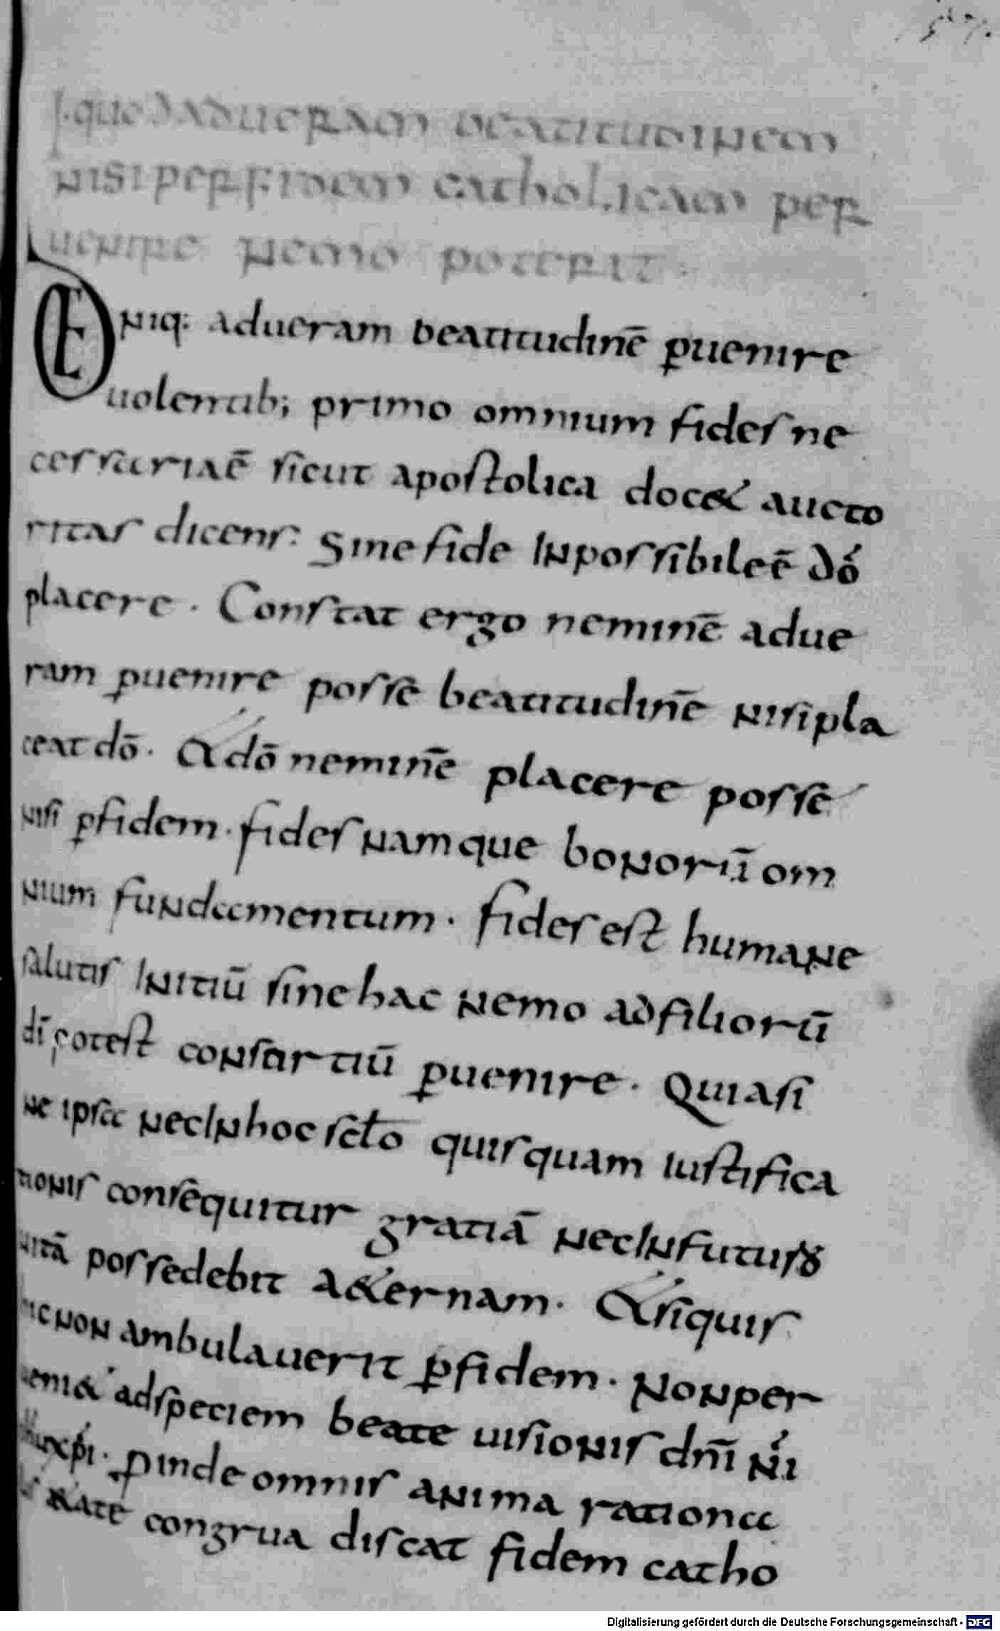 I. quod ad ueram beatitudinem
nisi per fidem catholicam per
uenire nemo poterit.
Eniq: adueram beatitudinē ꝑuenire
uolentib; primo omnium fides ne
cessaria ē sicut apostolica docet aucto
ritas dicens: Sine fide Inpossibile ē dō
placere. Constat ergo neminē adue
ram ꝑuenire posse beatitudinē nisi pla
ceat dō. & dō neminē placere posse
nisi ꝑfidem. fides namque bonorū om
nium fundamentum. fides est humane
salutis Initiū sine hac nemo ad filiorū
dī potest consortiū ꝑuenire. Quia si
ne ipsa nec In hoc sclo quisquam iustifica
tionis consequitur gratiā nec In futuro
uitā possedebit aeternam. & si quis
hic non ambulauerit ꝑfidem. Non per
ueniet ad speciem beate uisionis dnī nr̄i
ihu xpi. ꝓinde omnis anima rationa
lis aetate congrua discat fidem catho
Digitalisierung gefördert durch die Deutsche Forschungsgemeinschaft - DFG